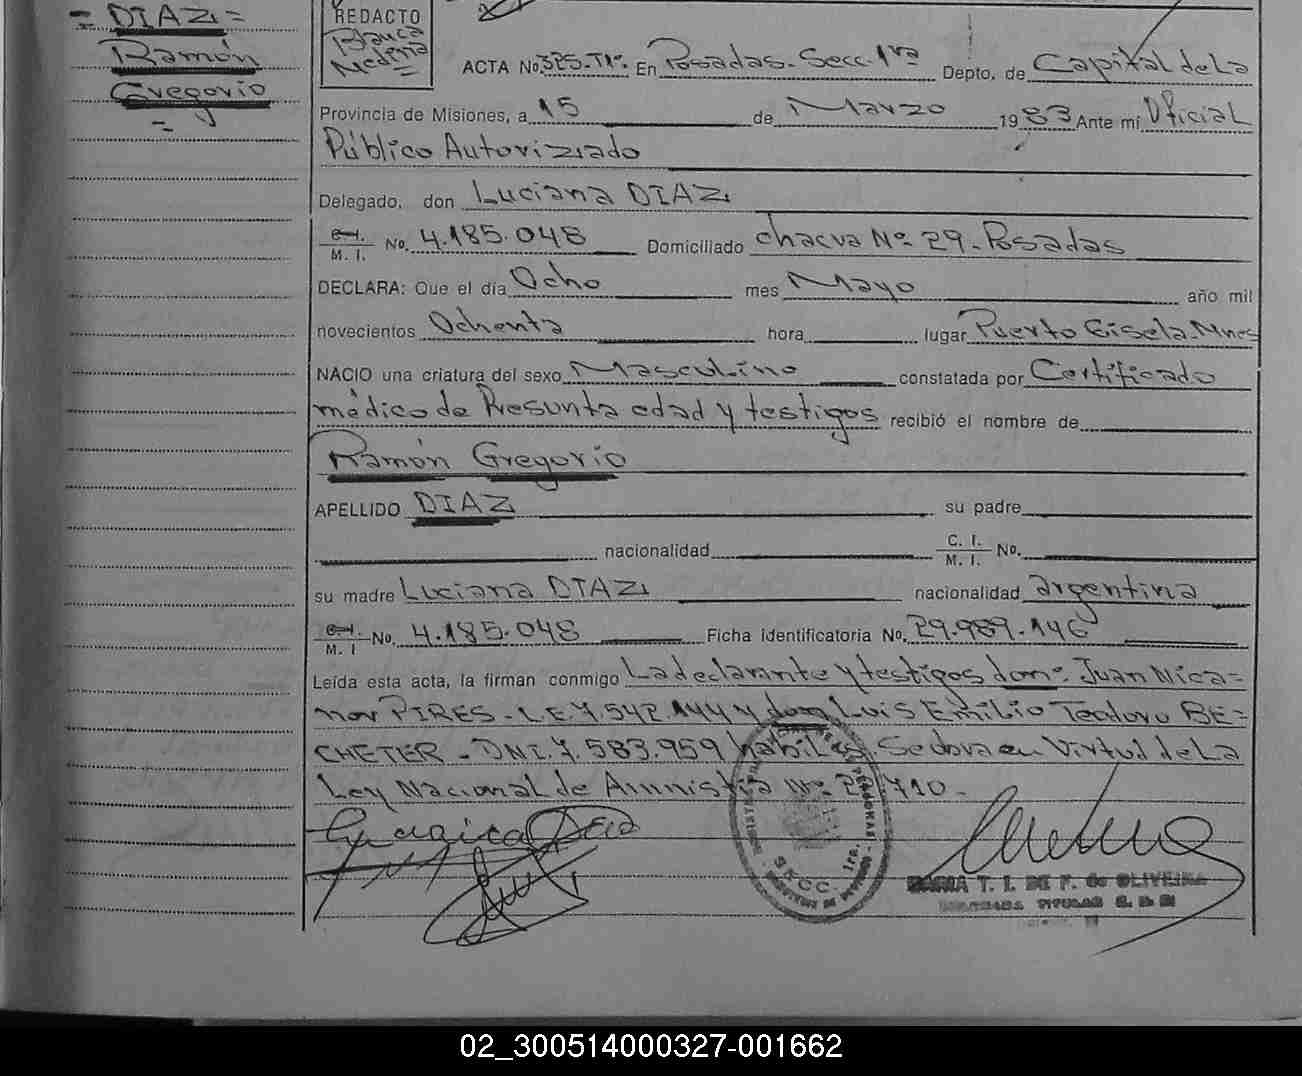 = DIAZ =
Ramón
Gregorio
=
REDACTO
Blanca
Medina
ACTA No. 325-T1º. En Posadas-Secc. 1ra Depto. de Capital de La
Provincia de Misiones, a 15 de Marzo 1983 Ante mí Oficial
Público Autorizado
Delegado, don Luciana DIAZ
C.I. M. I. No. 4.185.048 Domiciliado chacra Nº 29-Posadas
DECLARA: Que el día Ocho mes Mayo año mil
novecientos Ochenta hora lugar Puerto Gisela-Mnes
NACIO una criatura del sexo Masculino constatada por Certificado
médico de Presunta edad y testigos recibió el nombre de
Ramón Gregorio
APELLIDO DIAZ su padre
nacionalidad C. I. M. I. No.
su madre Luciana DIAZ nacionalidad argentina
C.I. M. I No. 4.185.048 Ficha identificatoria No. 29.989.146
Leída esta acta, la firman conmigo La declarante y testigos don: Juan Nica=
nor PIRES-L.E.7.542.144 y don Luis Emilio Teodoro BE=
CHETER-DNI.7.583.959 habiles. Se obra en Virtud de La
Ley Nacional de Amnistía Nº. 710-
SECC. 1ra.
MARIA T. I. DE F. de OLIVEIRA
TITULAR
02_300514000327-001662